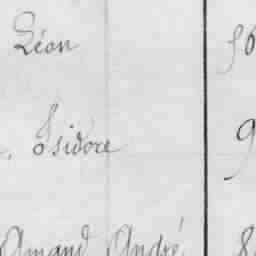 Léon 56
Isidore 9
Amand André 8